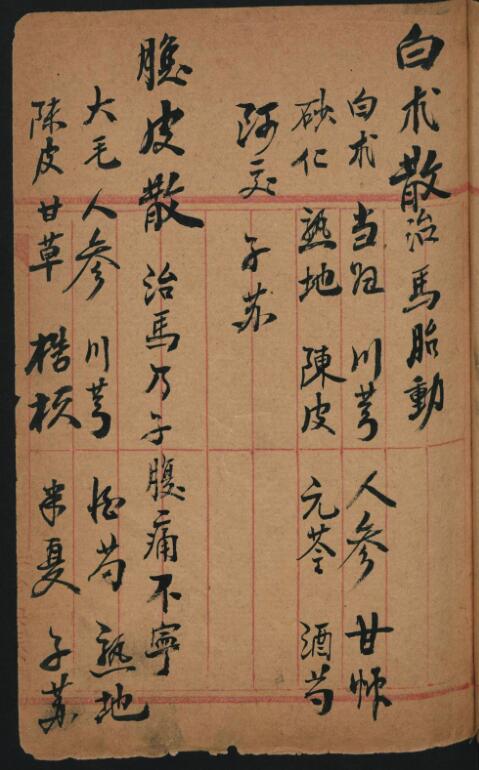 白朮散治馬胎動
白朮 当归 川芎 人參 甘草
砂仁 熟地 陳皮 元芩 酒芍
阿交 子苏
腹皮散 治馬乃子腹痛不寧
大毛 人參 川芎 芍 熟地
陈皮 甘草 桔梗 半夏 子苏